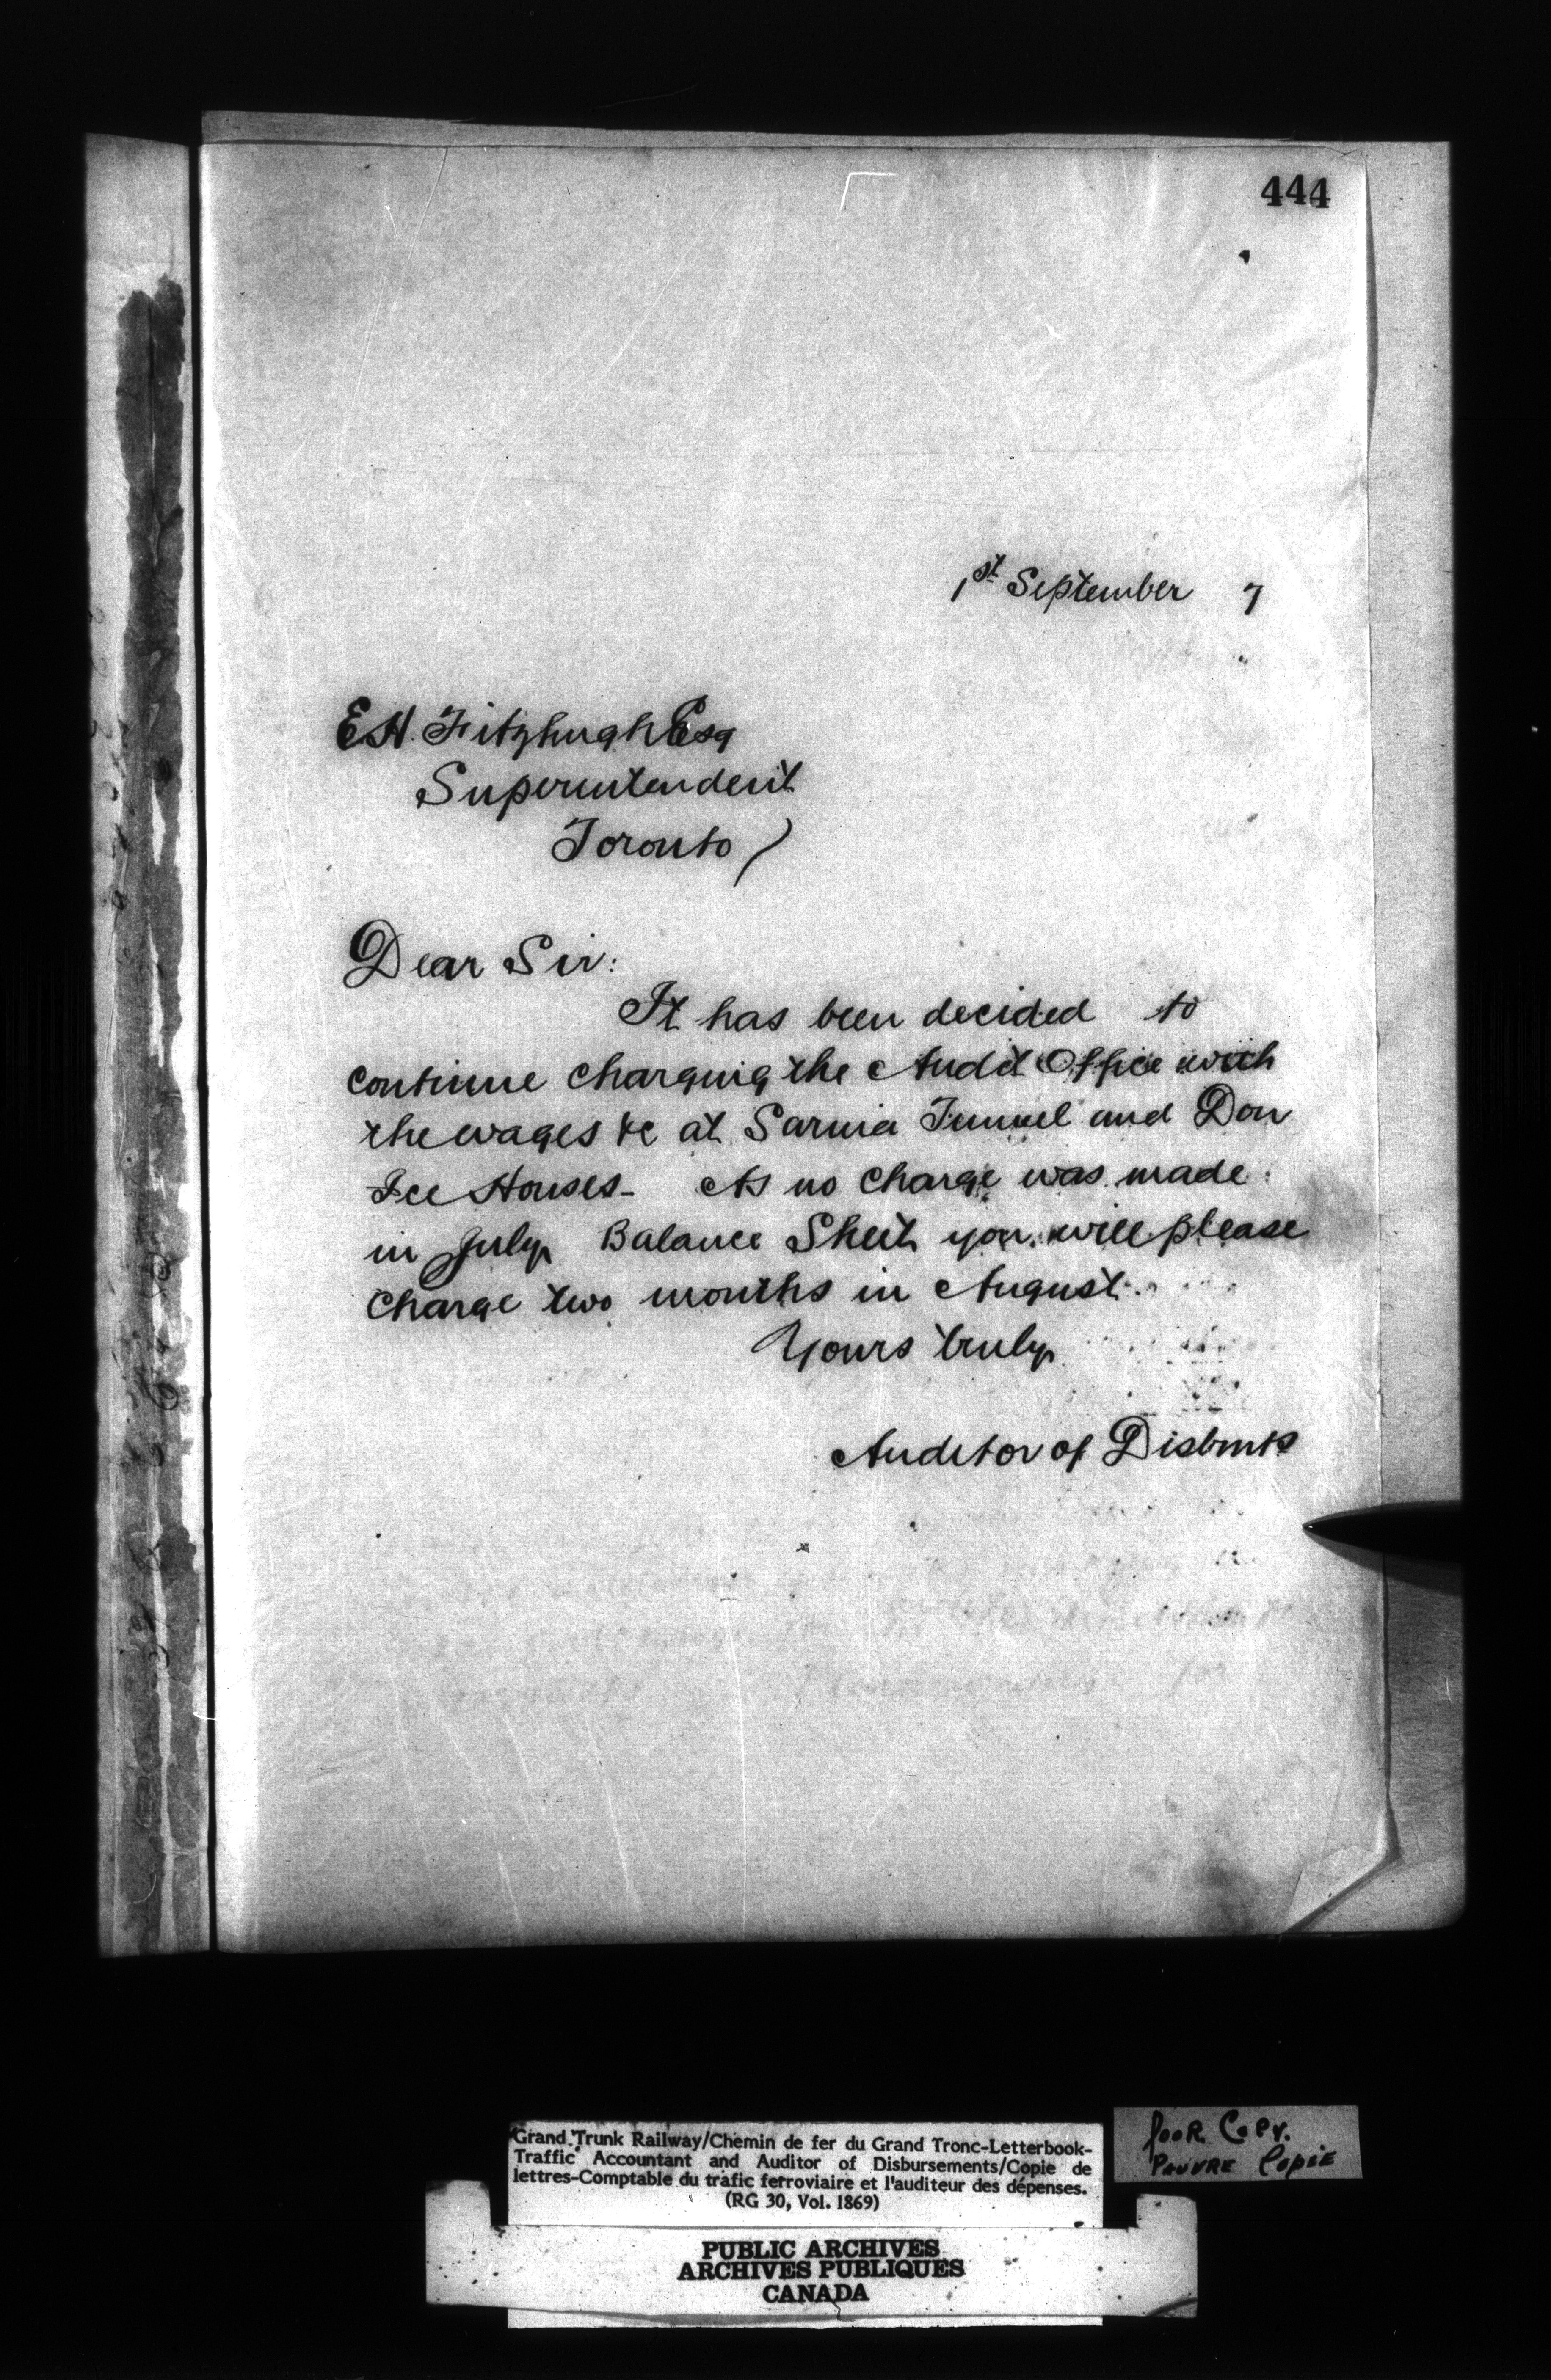 444
1st September 7
E.H. Fitzhugh Esq
Superintendent
Toronto
Dear Sir:
It has been decided to
continue charging the Audit Office with
the wages &c at Sarnia Tunnel and Don
Ice Houses- As no charge was made
in July Balance Sheet you will please
charge two months in August.
Yours truly
Auditor of Disbmts
Grand Trunk Railway/Chemin de fer du Grand Tronc-Letterbook-
Traffic Accountant and Auditor of Disbursements/Copie de
lettres-Comptable du trafic ferroviaire et l'auditeur des dépenses.
(RG 30, Vol. 1869)
Poor Copy.
Pauvre Copie
PUBLIC ARCHIVES
ARCHIVES PUBLIQUES
CANADA